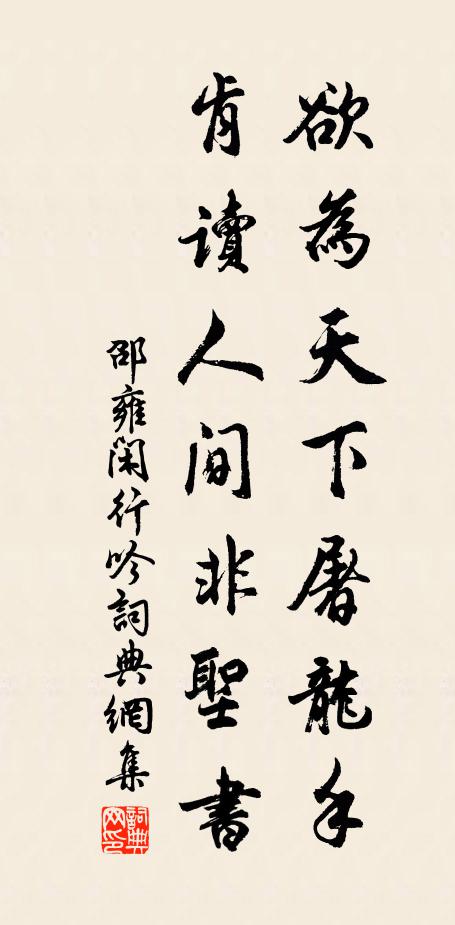 欲為天下屠龍手
肯讀人間非聖書
邵雍閑行吟詞典網集
詞典網印